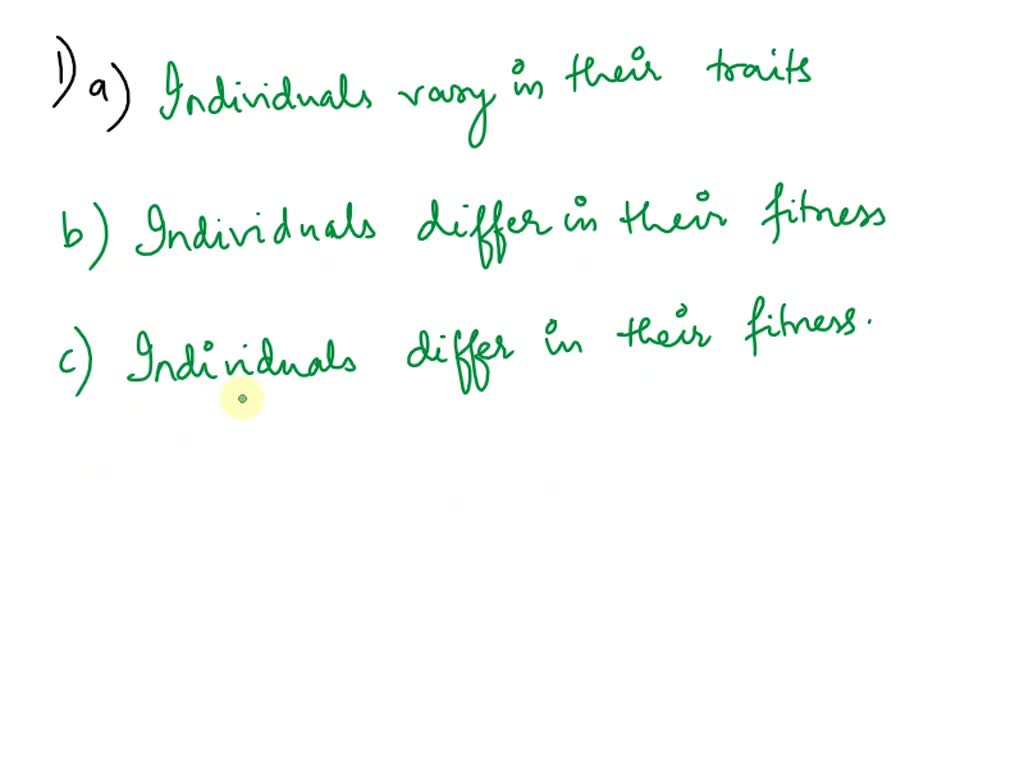 1) a) Individuals vary in their traits
b) Individuals differ in their fitness
c) Individuals differ in their fitness.